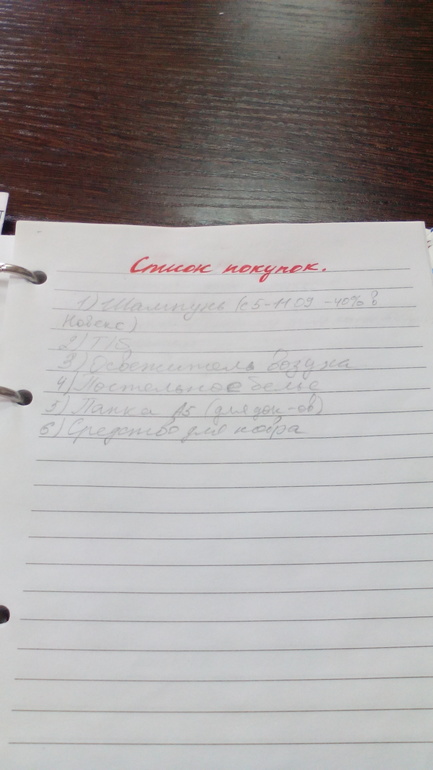 Список покупок.
1) Шампунь (с 5-11.09 -40% в
Новекс)
2) Т/б
3) Освежитель воздуха
4) Постельное белье
5) Папка А5 (для док-ов)
6) Средство для ковра